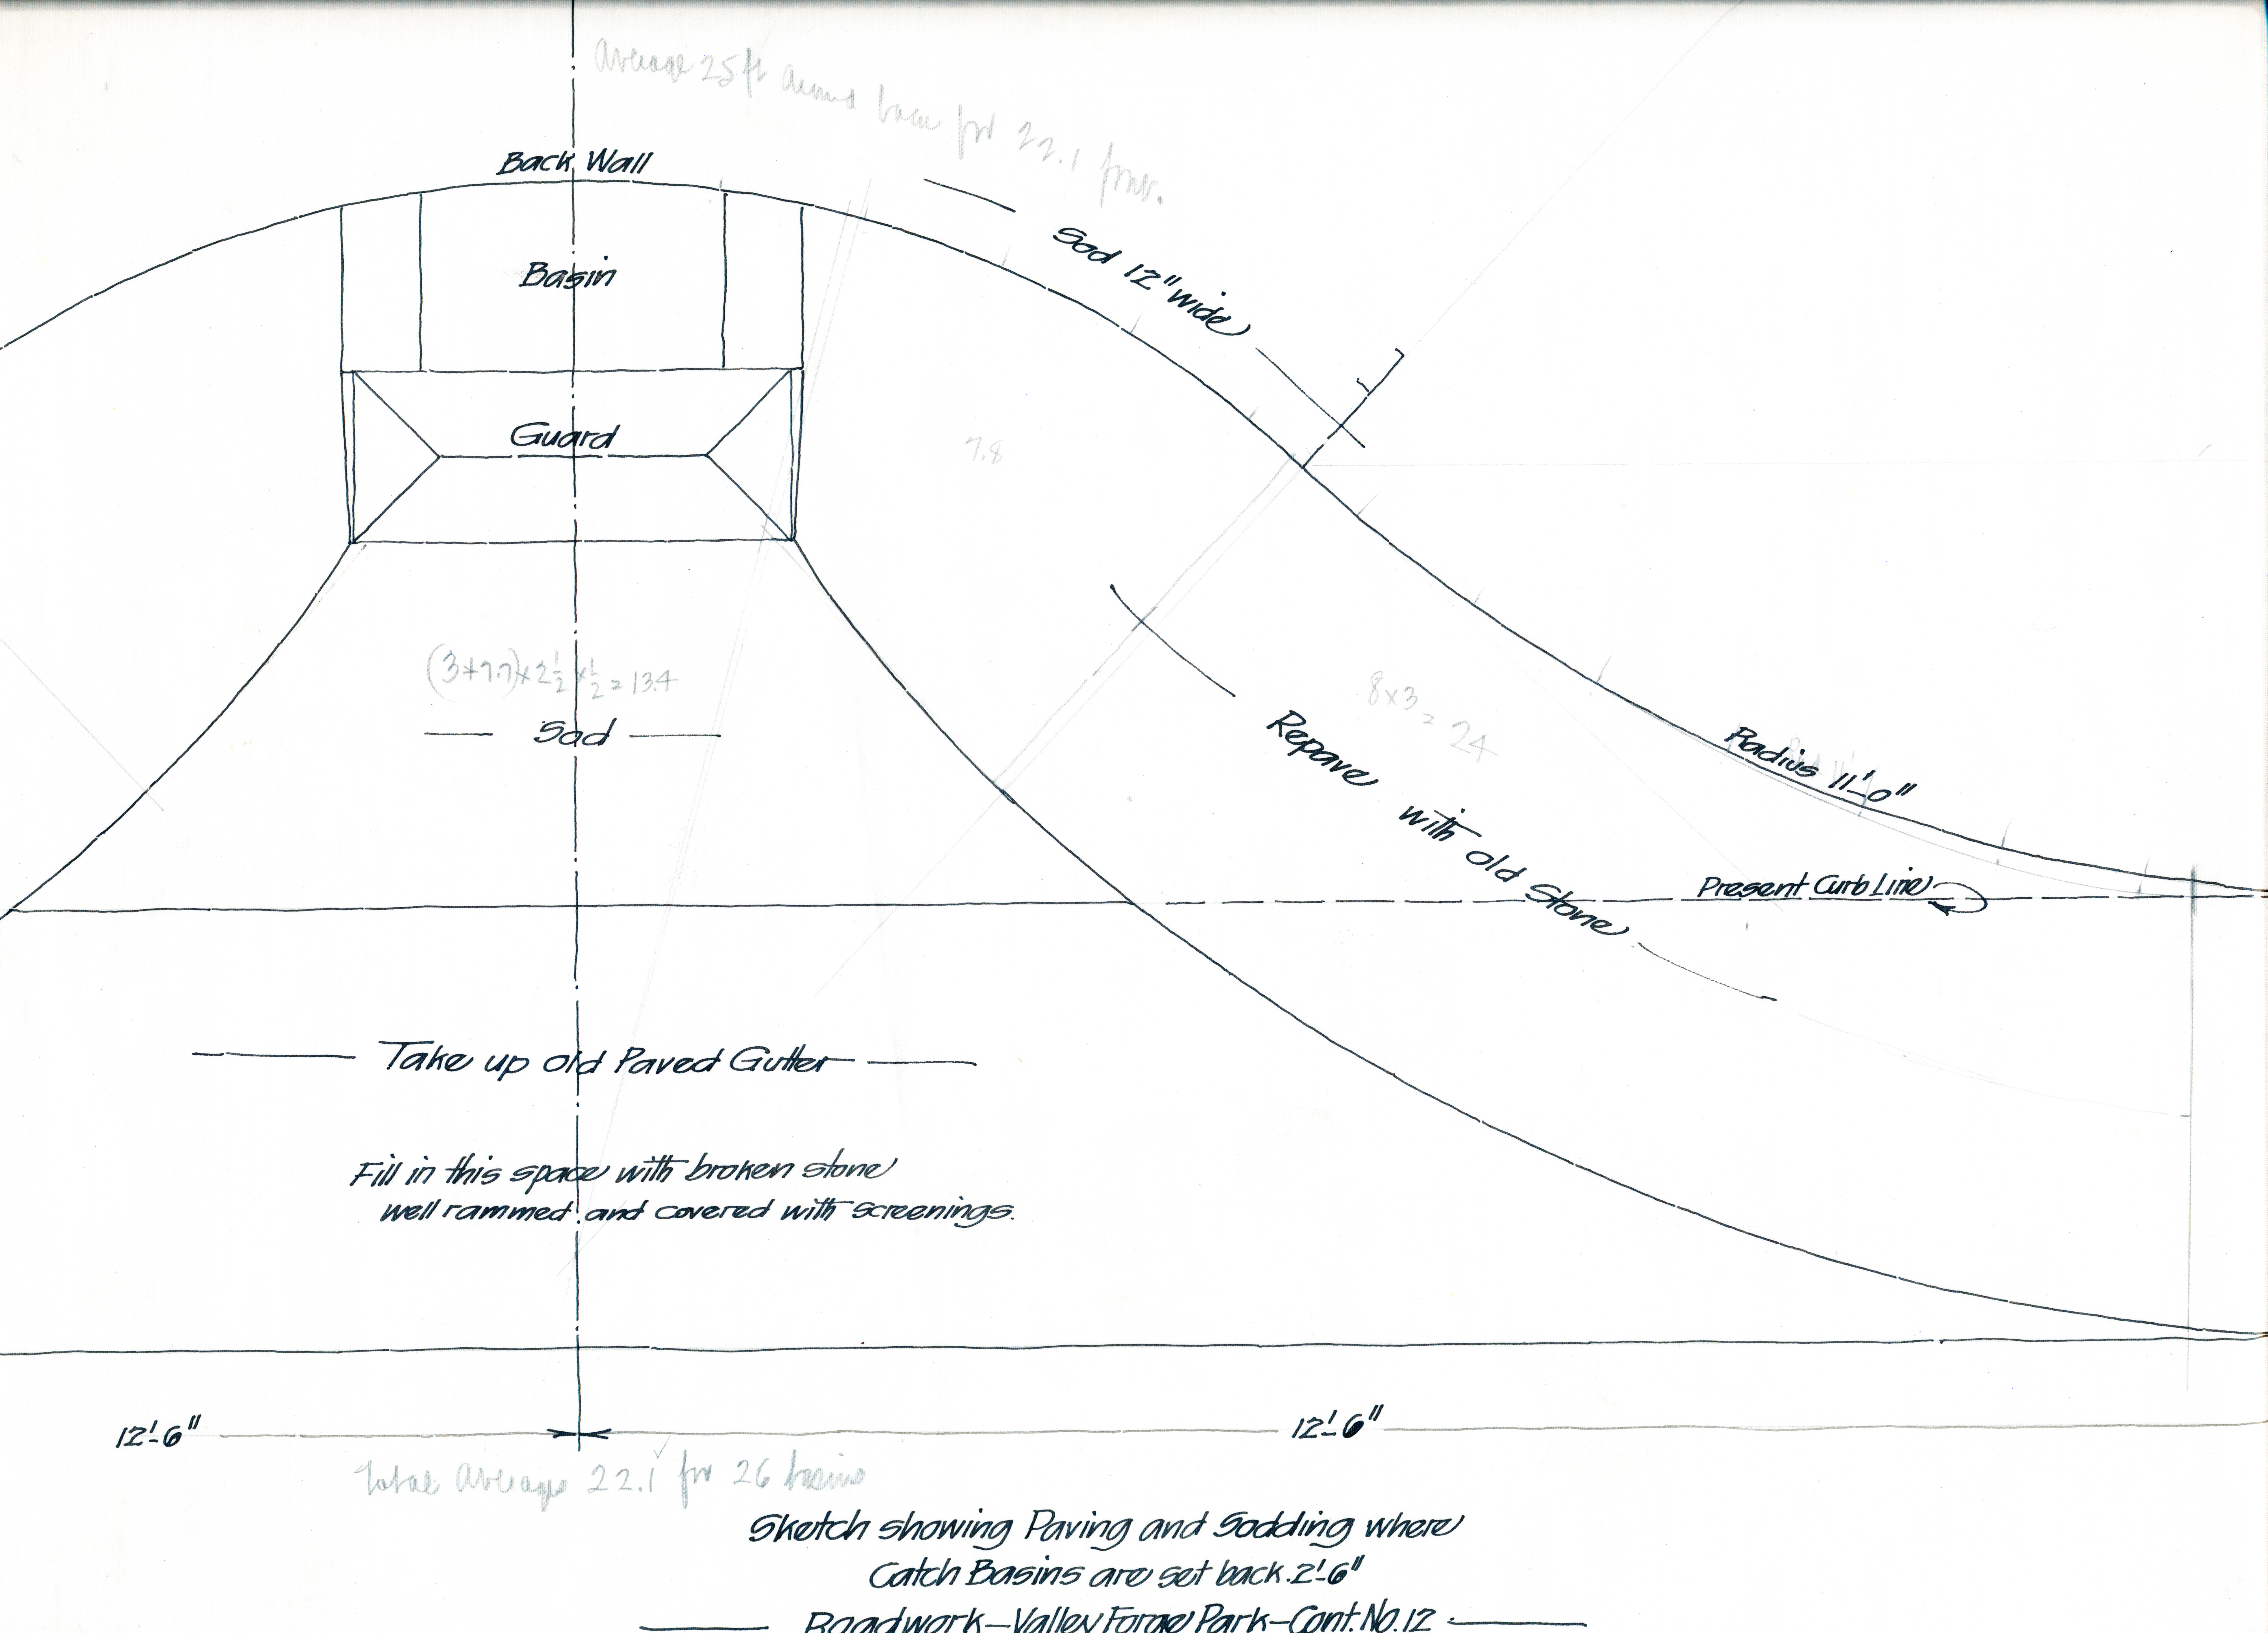 Average 25 ft around back for 22.1
Back Wall
Sod 12" wide
Basin
Guard
7.8
(3+7.7)x2½x½=13.4
Sod
8x3=24
Repave with old Stone
Radius 11'-0"
Present Curb Line
Take up old Paved Gutter
Fill in this space with broken stone
well rammed and covered with screenings.
12'-6"
12'-6"
Total Average 22.1 for 26 basins
Sketch showing Paving and Sodding where
Catch Basins are set back 2'-6"
Roadwork-Valley Forge Park-Cont. No. 12